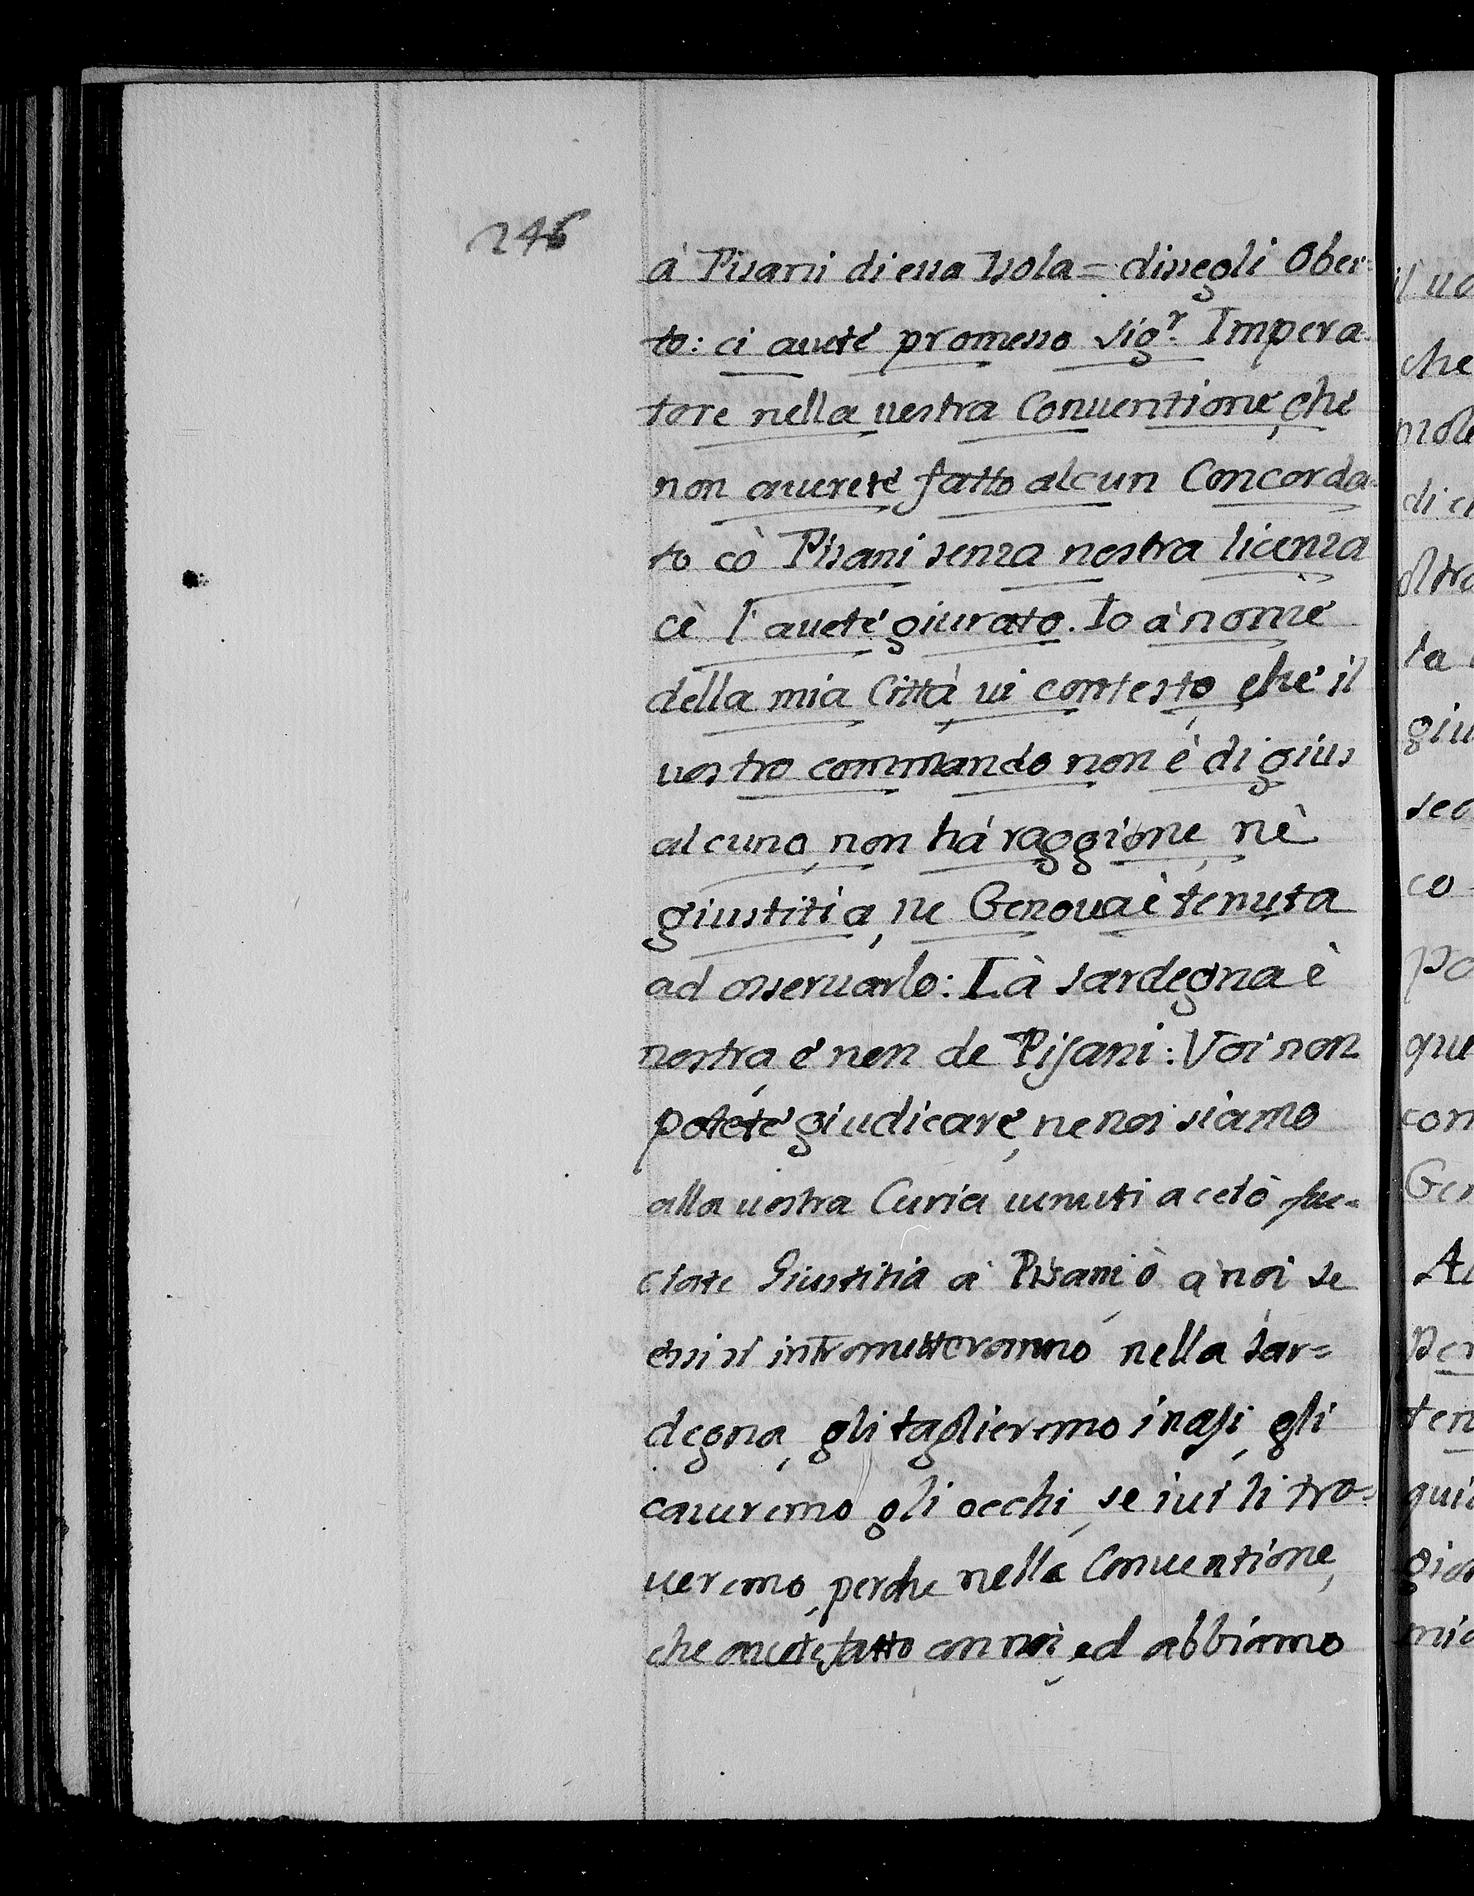 246
à Pisani di essa Isola = dissegli Ober-
to: ci aueté promesso Sig.r Impera-
tore nella uestra Conuentioné, ché
non auereté fatto alcun Concorda-
to cò Pisani senza nostra licenza
cè l'aueté giurato. Io à nomè
della mia Città ui contesto, ché il
uostro commando non è di gius
alcuno, non há raggione, nè
giustitia, ne Genoua è tenuta
ad osseruarlo: Là Sardegna è
nostra, é non de Pisani: Voi non
poteté giudicaré, ne noi siamo
alla uostra Curia uenuti a ció fac-
ciate Giustitia à Pisani, ò à noi se
essi si intrometteranno nella Sar=
degna, gli taglieremo i nasi, gli
caueremo gli occhi, se iui li tro=
ueremo, perche nella Conuentione,
che aueté fatto con noi, ed abbiamo
il uo
che
mole
di ci
oltra
la
giu
sed
co
po
que
con
Gen
Al
Per
ten
qui
gia
mia